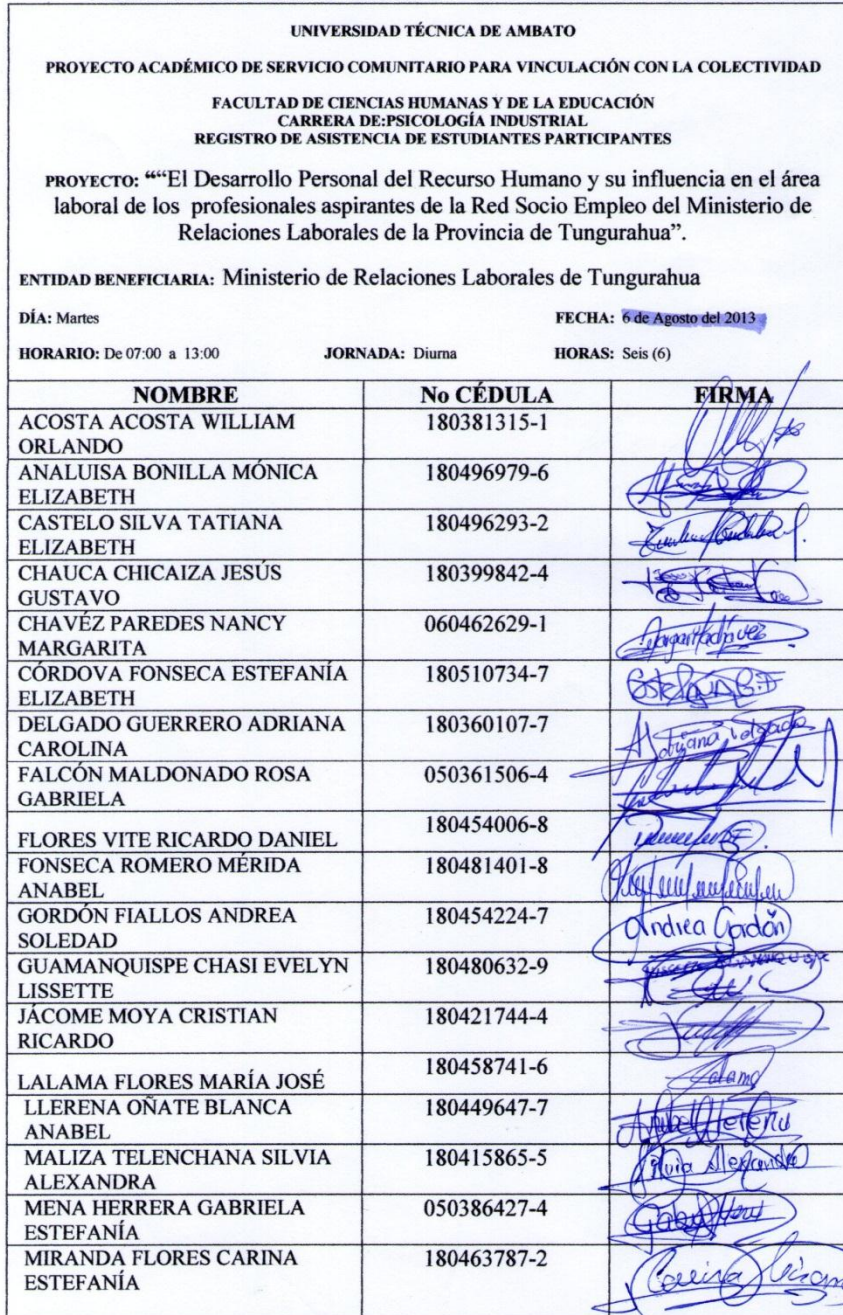 UNIVERSIDAD TÉCNICA DE AMBATO
PROYECTO ACADÉMICO DE SERVICIO COMUNITARIO PARA VINCULACIÓN CON LA COLECTIVIDAD
FACULTAD DE CIENCIAS HUMANAS Y DE LA EDUCACIÓN
CARRERA DE:PSICOLOGÍA INDUSTRIAL
REGISTRO DE ASISTENCIA DE ESTUDIANTES PARTICIPANTES
PROYECTO: ““El Desarrollo Personal del Recurso Humano y su influencia en el área
laboral de los profesionales aspirantes de la Red Socio Empleo del Ministerio de
Relaciones Laborales de la Provincia de Tungurahua”.
ENTIDAD BENEFICIARIA: Ministerio de Relaciones Laborales de Tungurahua
DÍA: Martes FECHA: 6 de Agosto del 2013
HORARIO: De 07:00 a 13:00 JORNADA: Diurna HORAS: Seis (6)
NOMBRE No CÉDULA FIRMA
ACOSTA ACOSTA WILLIAM 180381315-1
ORLANDO
ANALUISA BONILLA MÓNICA 180496979-6
ELIZABETH
CASTELO SILVA TATIANA 180496293-2
ELIZABETH
CHAUCA CHICAIZA JESÚS 180399842-4
GUSTAVO
CHAVÉZ PAREDES NANCY 060462629-1
MARGARITA
CÓRDOVA FONSECA ESTEFANÍA 180510734-7
ELIZABETH
DELGADO GUERRERO ADRIANA 180360107-7
CAROLINA Adriana Delgado
FALCÓN MALDONADO ROSA 050361506-4
GABRIELA
FLORES VITE RICARDO DANIEL 180454006-8
FONSECA ROMERO MÉRIDA 180481401-8
ANABEL
GORDÓN FIALLOS ANDREA 180454224-7 Andrea Gordón
SOLEDAD
GUAMANQUISPE CHASI EVELYN 180480632-9
LISSETTE
JÁCOME MOYA CRISTIAN 180421744-4
RICARDO
LALAMA FLORES MARÍA JOSÉ 180458741-6 Lalama
LLERENA OÑATE BLANCA 180449647-7
ANABEL Anabel Llerena
MALIZA TELENCHANA SILVIA 180415865-5 Silvia Alexandra
ALEXANDRA
MENA HERRERA GABRIELA 050386427-4
ESTEFANÍA
MIRANDA FLORES CARINA 180463787-2
ESTEFANÍA Carina